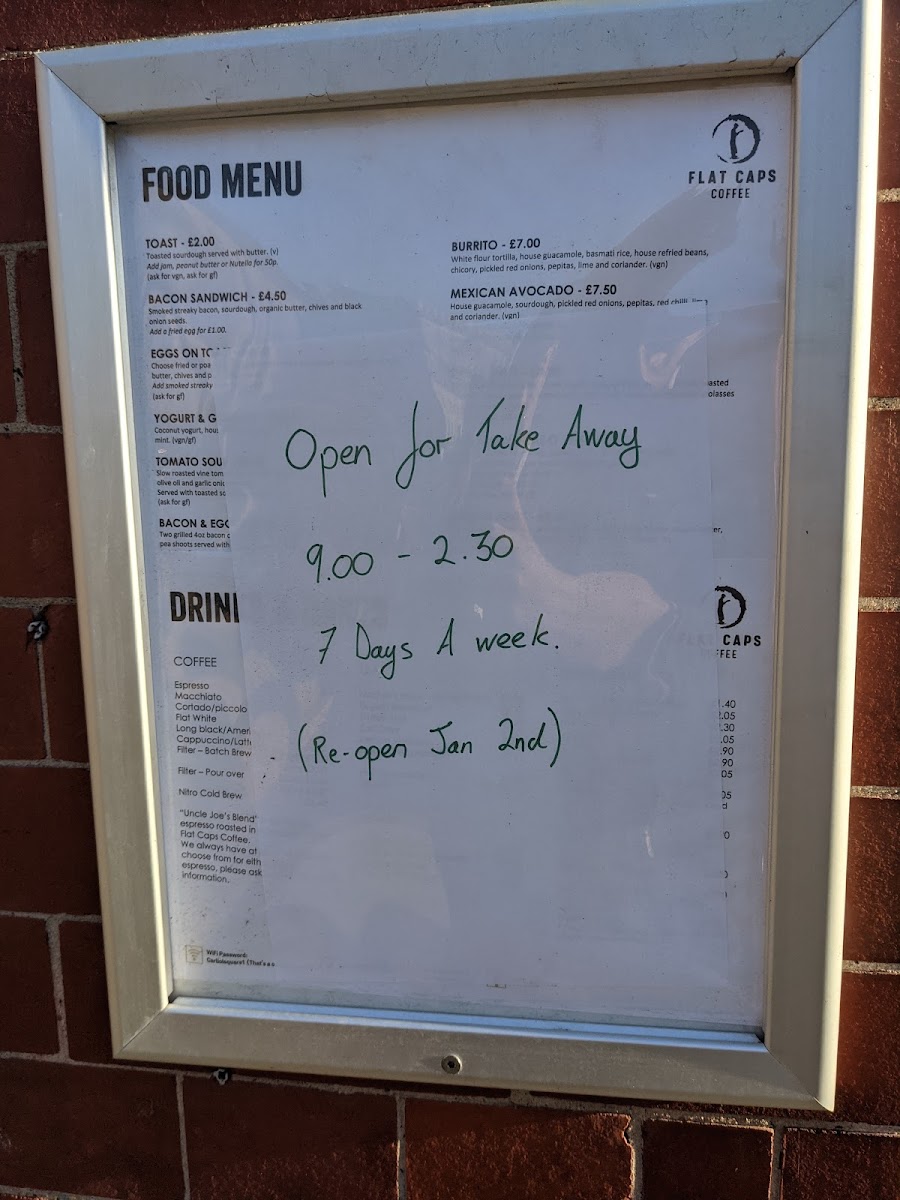 FOOD MENU
FLAT CAPS
COFFEE
TOAST - £2.00
Toasted sourdough served with butter. (v)
Add jam, peanut butter or Nutella for 50p.
(ask for vgn, ask for gf)
BACON SANDWICH - £4.50
Smoked streaky bacon, sourdough, organic butter, chives and black
onion seeds.
Add a fried egg for £1.00.
EGGS ON
Choose fried or
butter, chives and
Add smoked streaky
(ask for gf)
YOGURT &
Coconut yogurt,
mint. (vgn/gf)
TOMATO
Slow roasted vine
olive oil and garlic
Served with toasted
(ask for gf)
BACON &
Two grilled 4oz bacon
pea shoots served with
BURRITO - £7.00
White flour tortilla, house guacamole, basmati rice, house refried beans,
chicory, pickled red onions, pepitas, lime and coriander. (vgn)
MEXICAN AVOCADO - £7.50
House guacamole, sourdough, pickled red onions, pepitas, red chilli
and coriander. (vgn)
Open for Take Away
9.00 - 2.30
7 Days A week.
(Re-open Jan 2nd)
CAPS
COFFEE
Espresso
Macchiato
Cortado/piccolo
Flat White
Long black/
Cappuccino/
Filter – Batch Brew
Filter – Pour over
Nitro Cold Brew
"Uncle Joe's Blend'
espresso roasted in
Flat Caps Coffee.
We always have at
choose from for
espresso, please ask
information.
.40
.05
.30
.05
.90
.90
05
05
WiFi Password: